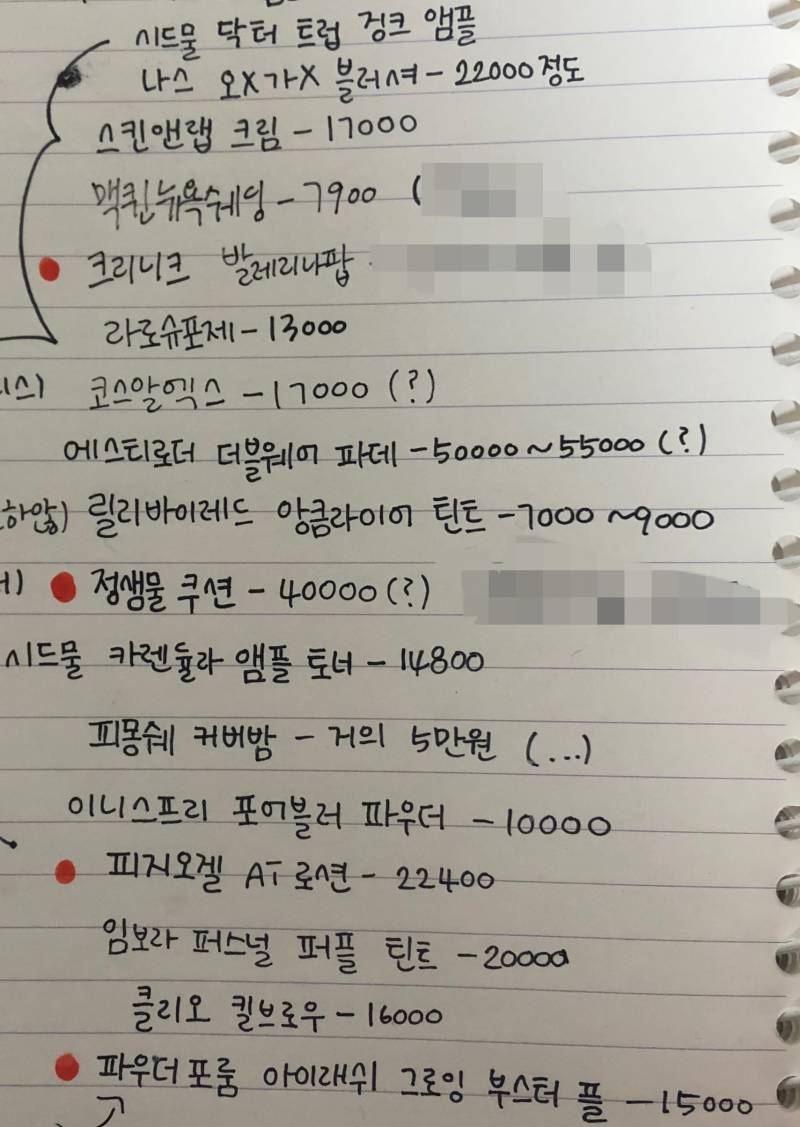 시드물 닥터 트럽 징크 앰플
나스 오X가X 블러셔 - 22000정도
스킨앤랩 크림 - 17000
맥퀸뉴욕쉐딩 - 7900 (
크리니크 발레리나팝
라로슈포제 - 13000
스) 코스알엑스 - 17000 (?)
에스티로더 더블웨어 파데 - 50000 ~ 55000 (?)
하얂) 릴리바이레드 앙큼라이어 틴트 - 7000 ~ 9000
정샘물 쿠션 - 40000 (?)
시드물 카렌듈라 앰플 토너 - 14800
피몽쉐 커버밤 - 거의 5만원 (...)
이니스프리 포어블러 파우더 - 10000
피지오겔 AT 로션 - 22400
임보라 퍼스널 퍼플 틴트 - 20000
클리오 킬브로우 - 16000
파우더포룸 아이래쉬 그로잉 부스터 플 - 15000